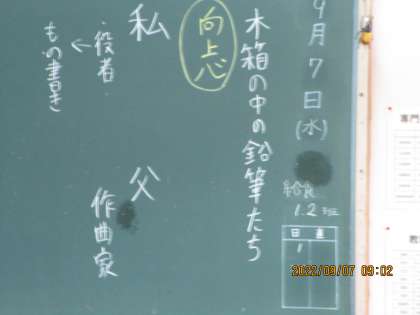 9月7日(水)
給食
1.2班
日直
木箱の中の鉛筆たち
向上心
私
・役者
←
もの書き
父
作曲家
2022/09/07 09:02
専門